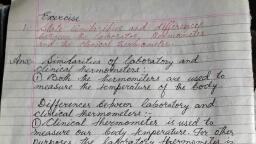 Exercise
1. State similarities and differences
between the laboratory thermometer
and the clinical thermometer.
Ans:- Similarities of laboratory and
clinical thermometers:-
① Both the thermometers are used to
measure the temperature of the body.
Differences between laboratory and
clinical thermometers:-
① Clinical thermometer is used to
measure our body temperature. For other
purposes the laboratory thermometer is